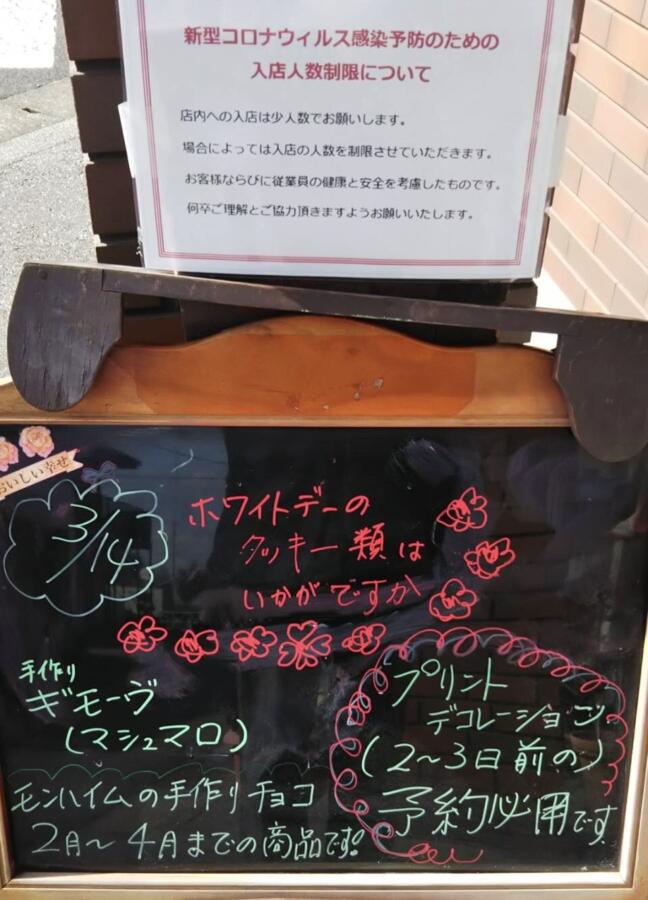 新型コロナウィルス感染予防のための
入店人数制限について
店内への入店は少人数でお願いします。
場合によっては入店の人数を制限させていただきます。
お客様ならびに従業員の健康と安全を考慮したものです。
何卒ご理解とご協力頂きますようお願いいたします。
おいしい幸せ
3/14
ホワイトデーの
クッキー類は
いかがですか
手作り
ギモーヴ
(マシュマロ)
モンハイムの手作りチョコ
2月～4月までの商品です!
プリント
デコレーション
(2～3日前の)
予約必用です